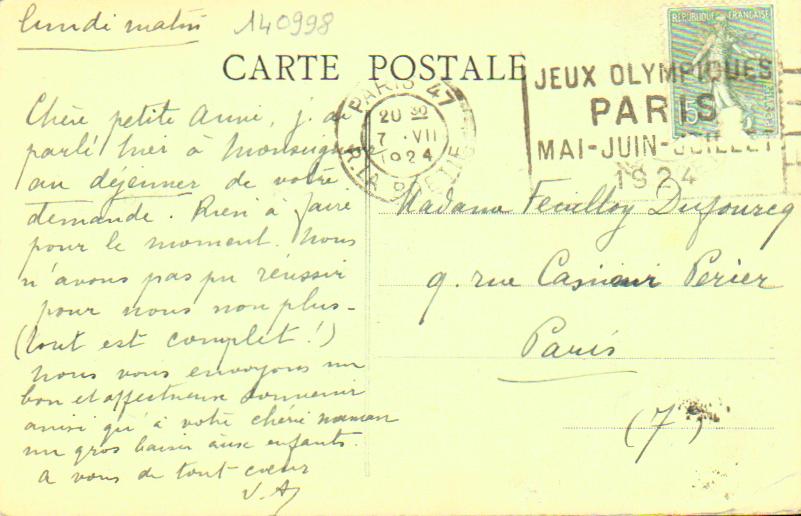 lundi matin
140998
CARTE POSTALE
RÉPUBLIQUE FRANÇAISE
15
PARIS 47
20 30
7 . VII
1924
R. LA BOETIE
JEUX OLYMPIQUES
PARIS
MAI-JUIN-JUILLET
1924
Chère petite amie, j. ai
parlé hier à Monseigneur
au déjeuner de votre
demande. Rien à faire
pour le moment. Nous
n'avons pas pu réussir
pour nous non plus -
(tout est complet!)
Nous vous envoyons un
bon et affectueux souvenir
ainsi qu'à votre chère maman
un gros baiser aux enfants.
A vous de tout cœur
Madame Feuilloy Dufourcq
9. rue Casimir Perier
Paris
(7)